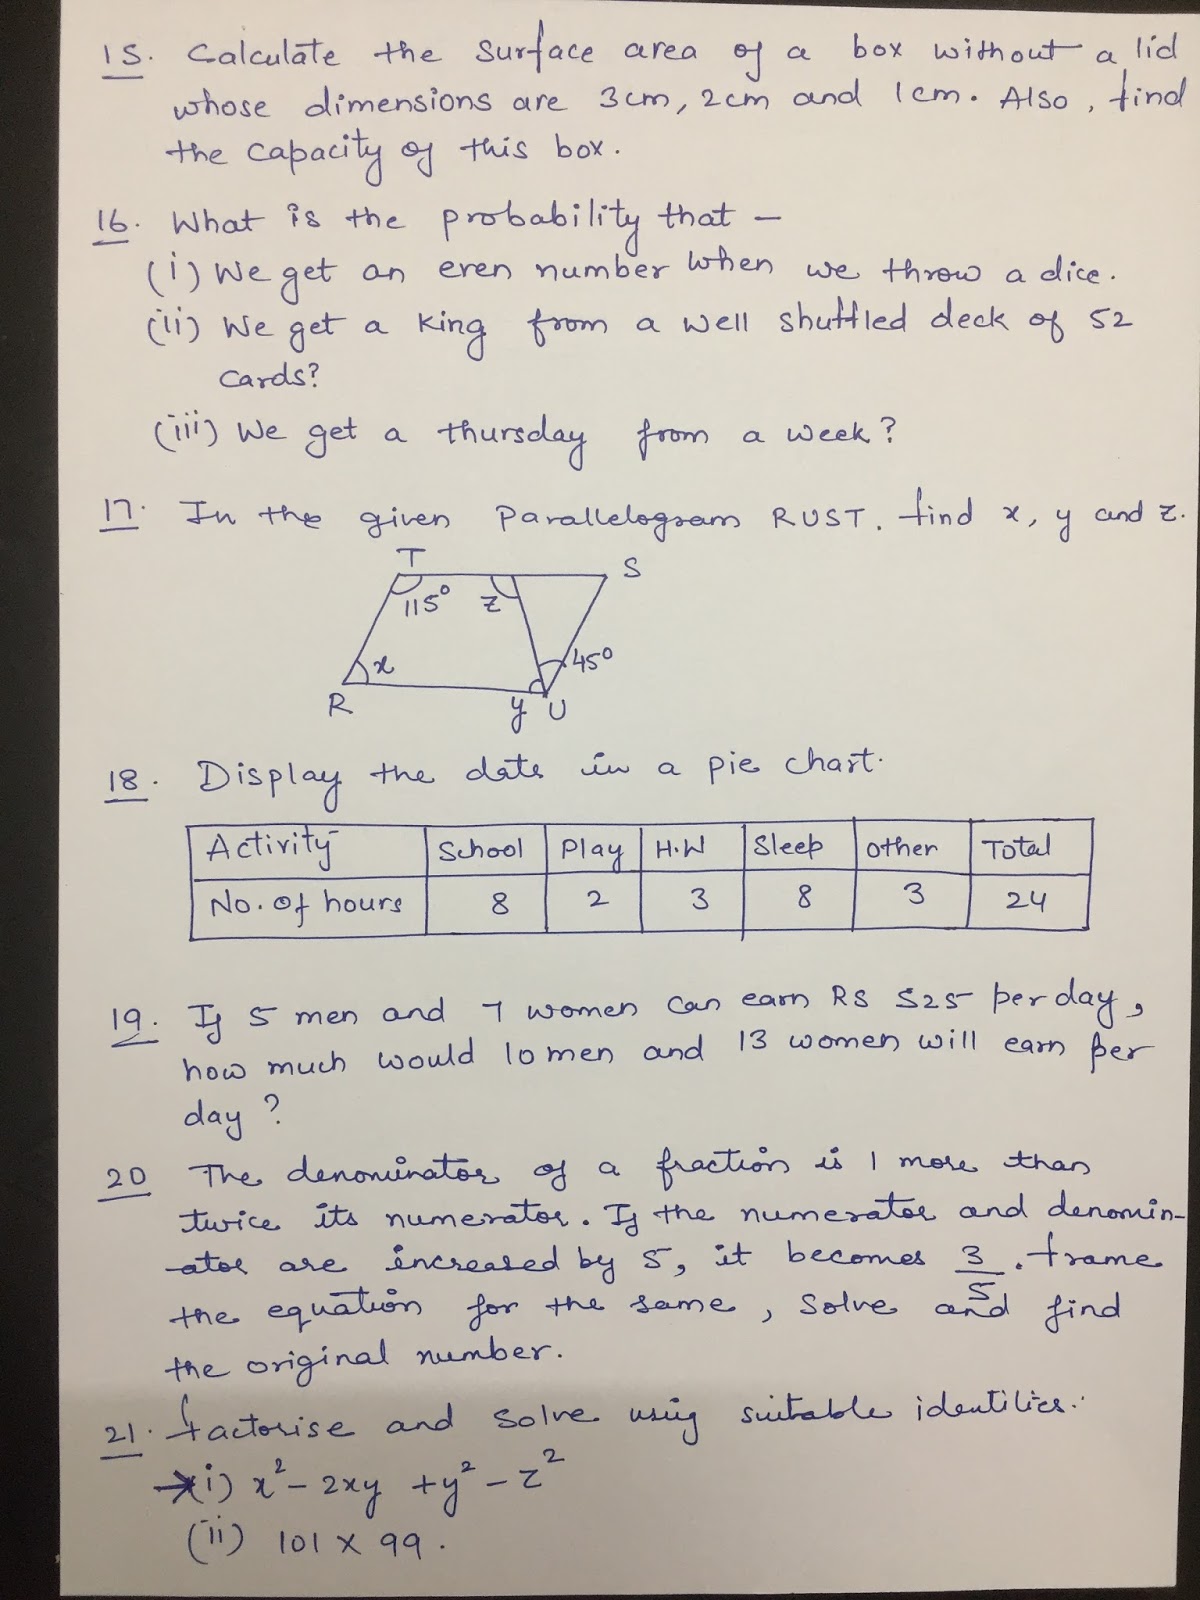 15. Calculate the surface area of a box without a lid
whose dimensions are 3cm, 2cm and 1cm. Also, find
the capacity of this box.
16. What is the probability that —
(i) We get an even number when we throw a dice.
(ii) We get a king from a well shuffled deck of 52
cards?
(iii) We get a thursday from a week?
17. In the given Parallelogram RUST. find x, y and z.
T S
115° z
x 45°
R y U
18. Display the data in a pie chart.
Activity School Play H.W Sleep other Total
No. of hours 8 2 3 8 3 24
19. If 5 men and 7 women can earn RS 525 per day,
how much would 10 men and 13 women will earn per
day ?
20 The denominator of a fraction is 1 more than
twice its numerator. If the numerator and denomin-
-ator are increased by 5, it becomes 3/5. frame
the equation for the same, solve and find
the original number.
21. factorise and solve using suitable identities.
i) x² - 2xy + y² - z²
(ii) 101 x 99.